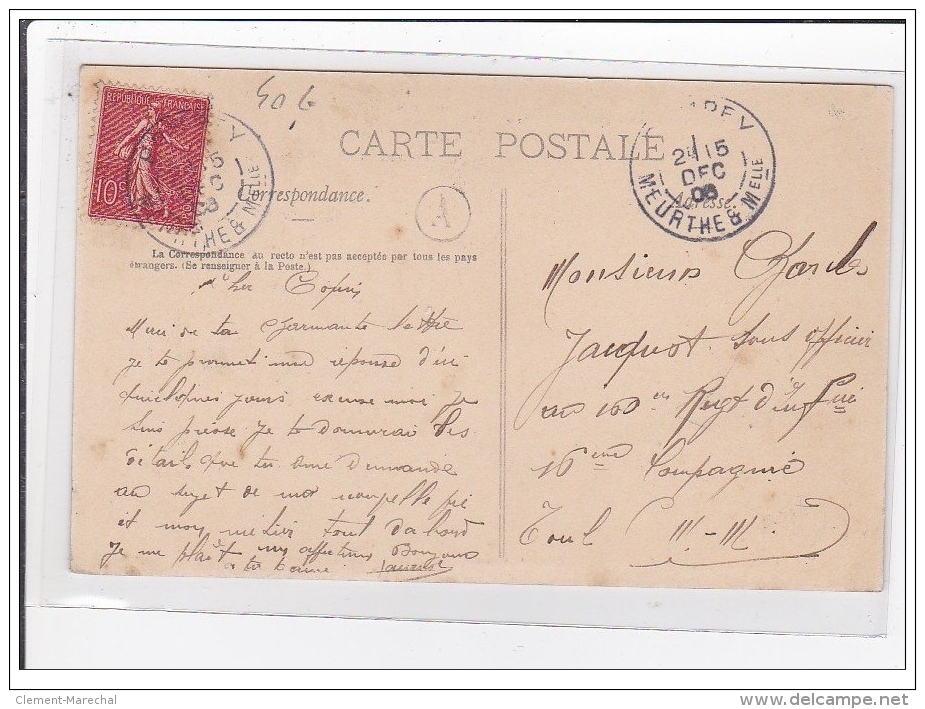 RÉPUBLIQUE FRANÇAISE
10c
50,
CARTE POSTALE
Correspondance.
A
Adresse.
21 15
DEC
MEURTHE & MELLE
La Correspondance au recto n'est pas acceptée par tous les pays
étrangers. (Se renseigner à la Poste.)
Cher Copin
Merci de ta charmante lettre
je te promet une réponse d'ici
quelques jours excuse moi je
suis pressé je te donnerai des
détails que tu me demande
au sujet de ma nouvelle vie
et mon métier tout dabord
je me plait
Monsieur Charles
Jacquot sous officier
au 160 em Regt d'infie
16 eme Compagnie
Toul M.-M.
Clement-Marechal
www.delcampe.net